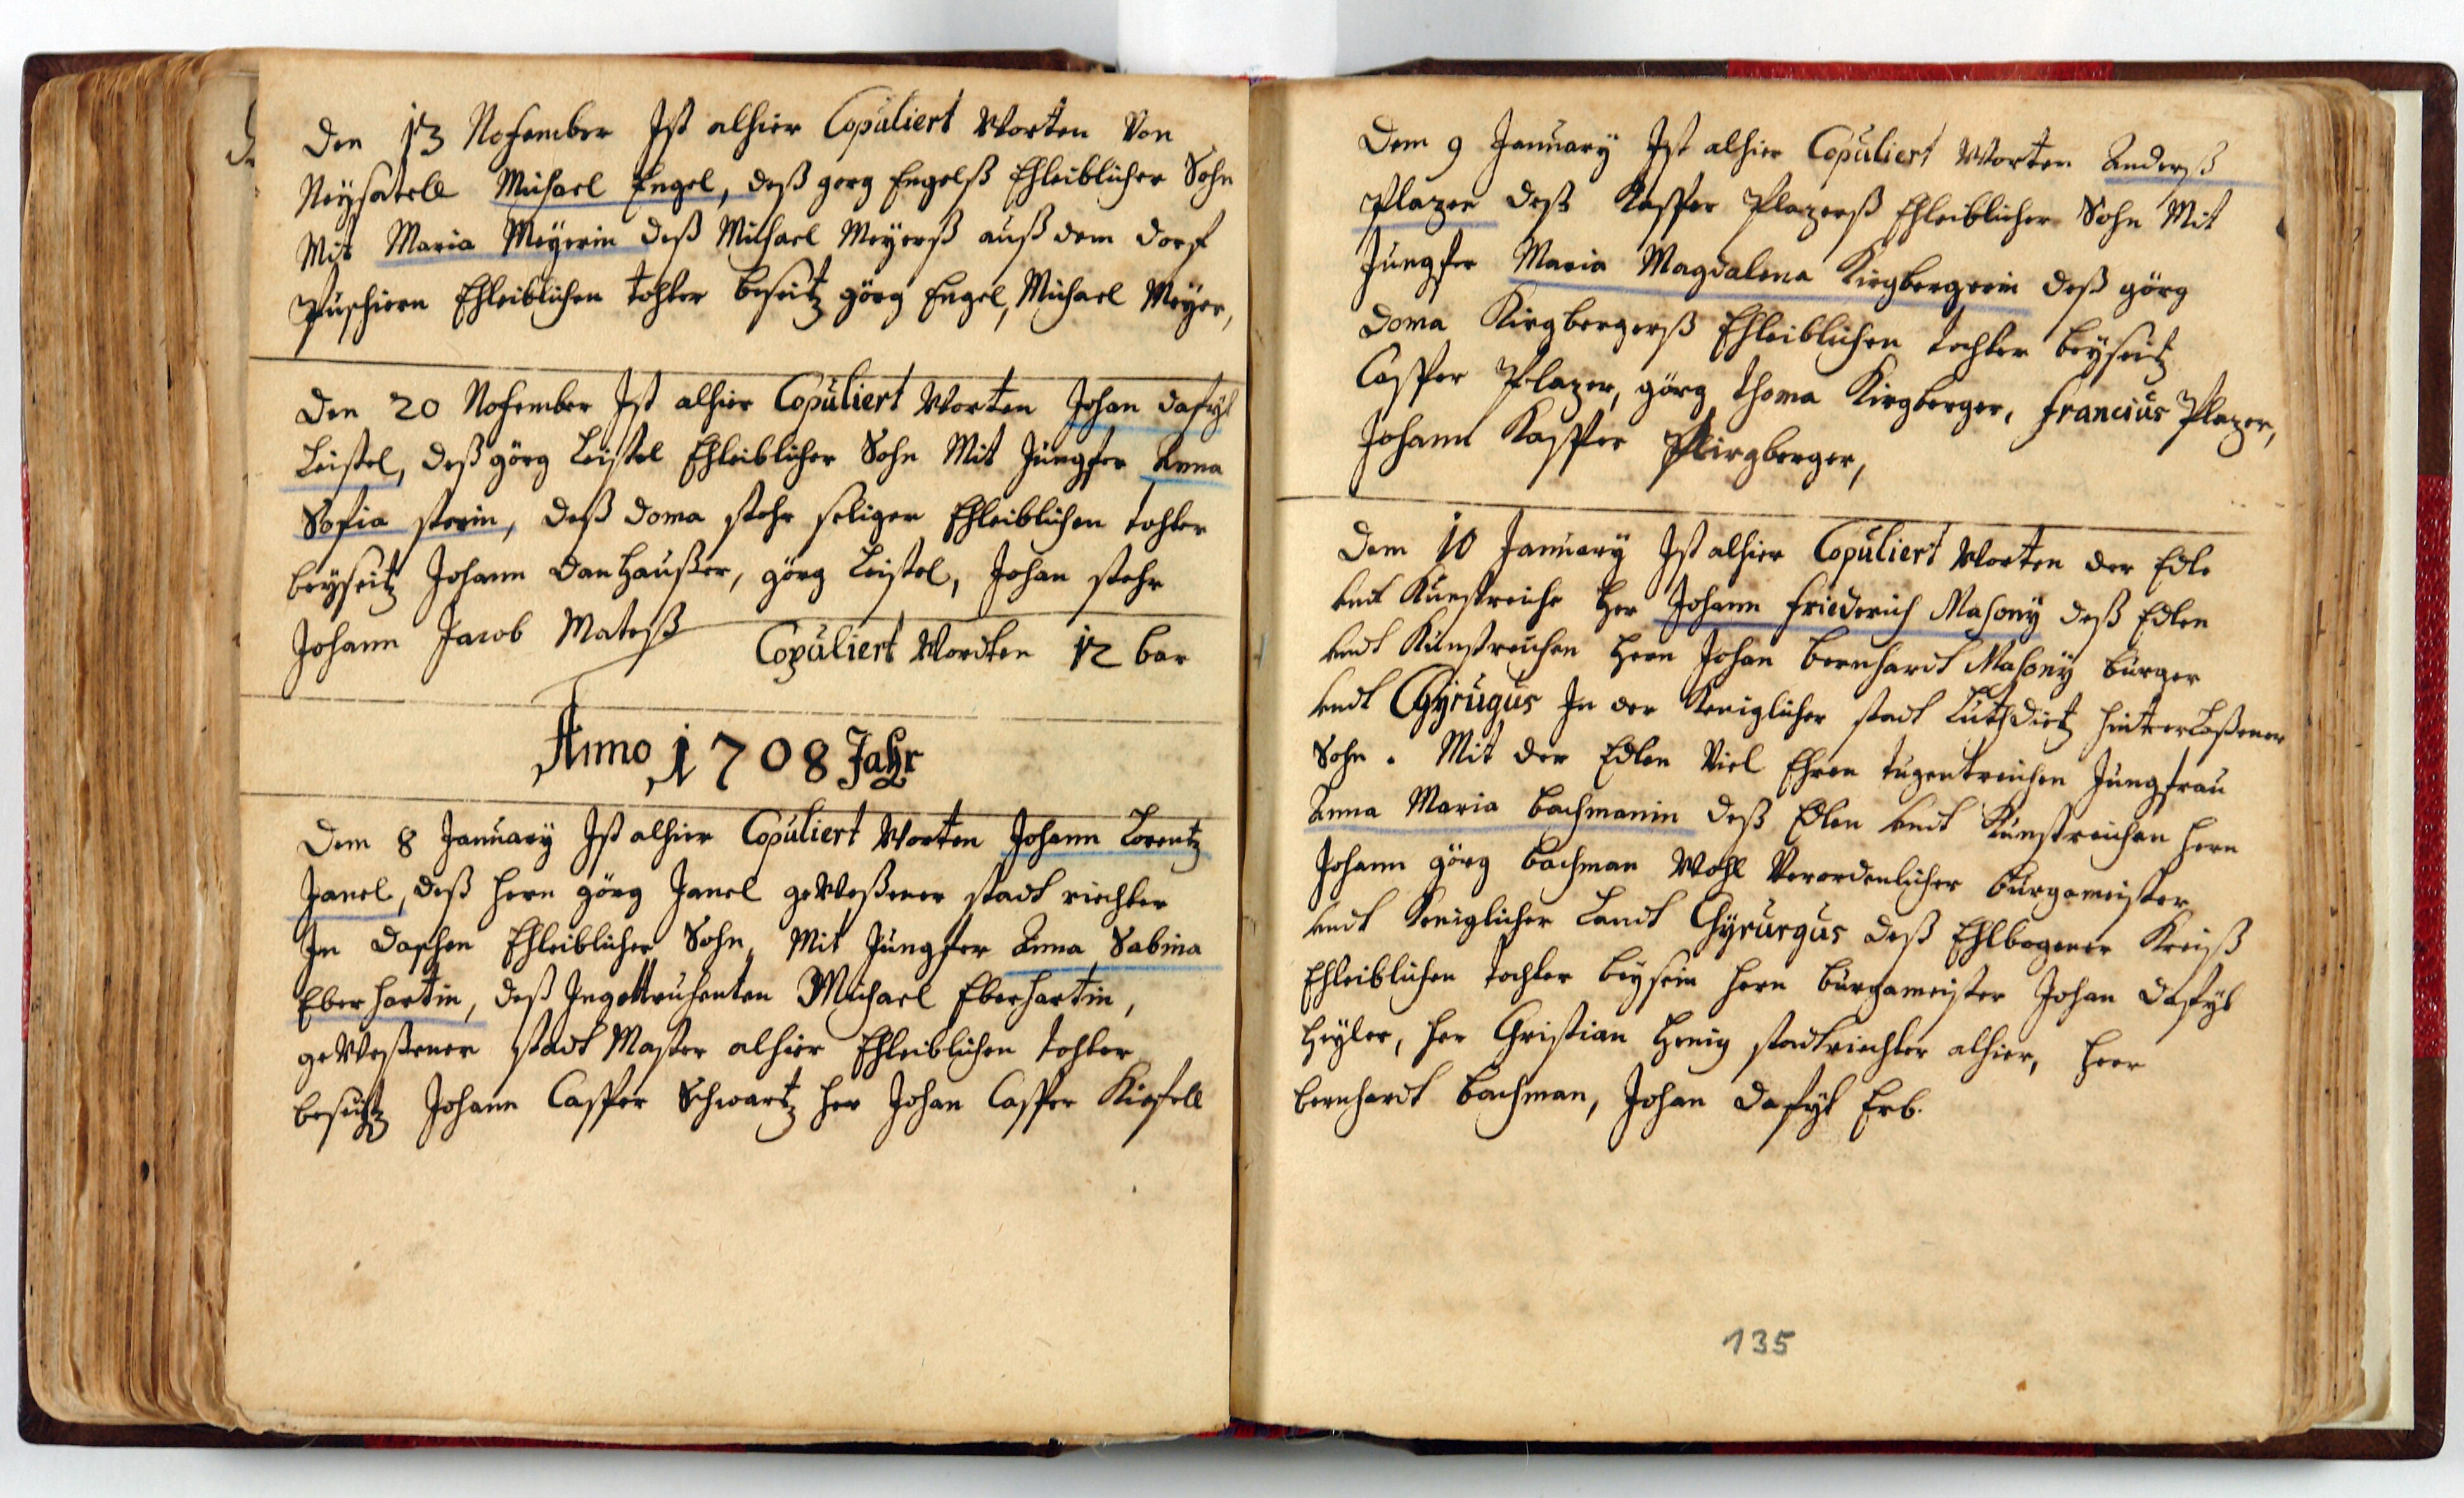 Den 13 Nofember Ist alhier Copuliert Worten Von
Neysatell Michael Engel, deß gorg Engelß Ehleiblicher Sohn
Mit Maria Meyerin deß Michael Meyerß auß dem dorf
Puschiern Ehleiblichen tohter beseitz görg Engel, Michael Meyer,
Den 20 Nofember Ist alhier Copuliert Worten Johan dafyt
Leistel, deß görg Leistel Ehleiblicher Sohn Mit Jungfer Anna
Sofia storin, deß doma stohr seliger Ehleiblichen tohter
beyseitz Johann Danhaußer, görg Leistel, Johan stohr
Johann Jacob Mateß
Copuliert Wordten 12 bar
Anno 1708 Jahr
Dem 8 January Ist alhier Copuliert Worten Johann Lorentz
Janel, deß hern görg Janel geweßener stadt richter
In daschen Ehleiblicher Sohn, Mit Jungfer Anna Sabina
Eberhartin, deß Michael Eberhartin,
geweßener stadt Master alhier Ehleiblichen tohter
Johann Casper Schwartz her Johan Casper
Dem 9 January Ist alhier Copuliert Worten Anderß
Plazer deß Kasper Plazerß Ehleiblicher Sohn Mit
Jungfer Maria Magdalena Kirgbergerin deß görg
doma Kirgbergerß Ehleiblichen tochter beyseitz
Casper Plazer, görg thoma Kirgberger, Francius Plazer,
Johann Kasper Kirgberger,
Dem 10 January Ist alhier Copuliert Worten der Edle
undt Kunstreiche her Johann Friederich Masony deß Edlen
undt Kunstreichen hern Johan Bernhardt Masony burger
undt Chyrugus In der Keniglicher stadt hinterloßener
Sohn. Mit der Edlen Viel Ehren tugentreichen Jungfrau
Anna Maria Bachmanin deß Edlen undt Kunstreichen hern
Johann görg Bachman Wohl Verordenlicher Burgameister
undt Keniglicher Landt Chyrurgus deß Ehlbogener Kreiß
Ehleiblichen tochter beysein hern burgameister Johan dafyt
Heyler, her Christian Henig stadtrichter alhier, heer
bernhardt Bachman, Johan dafyt Erb.
135